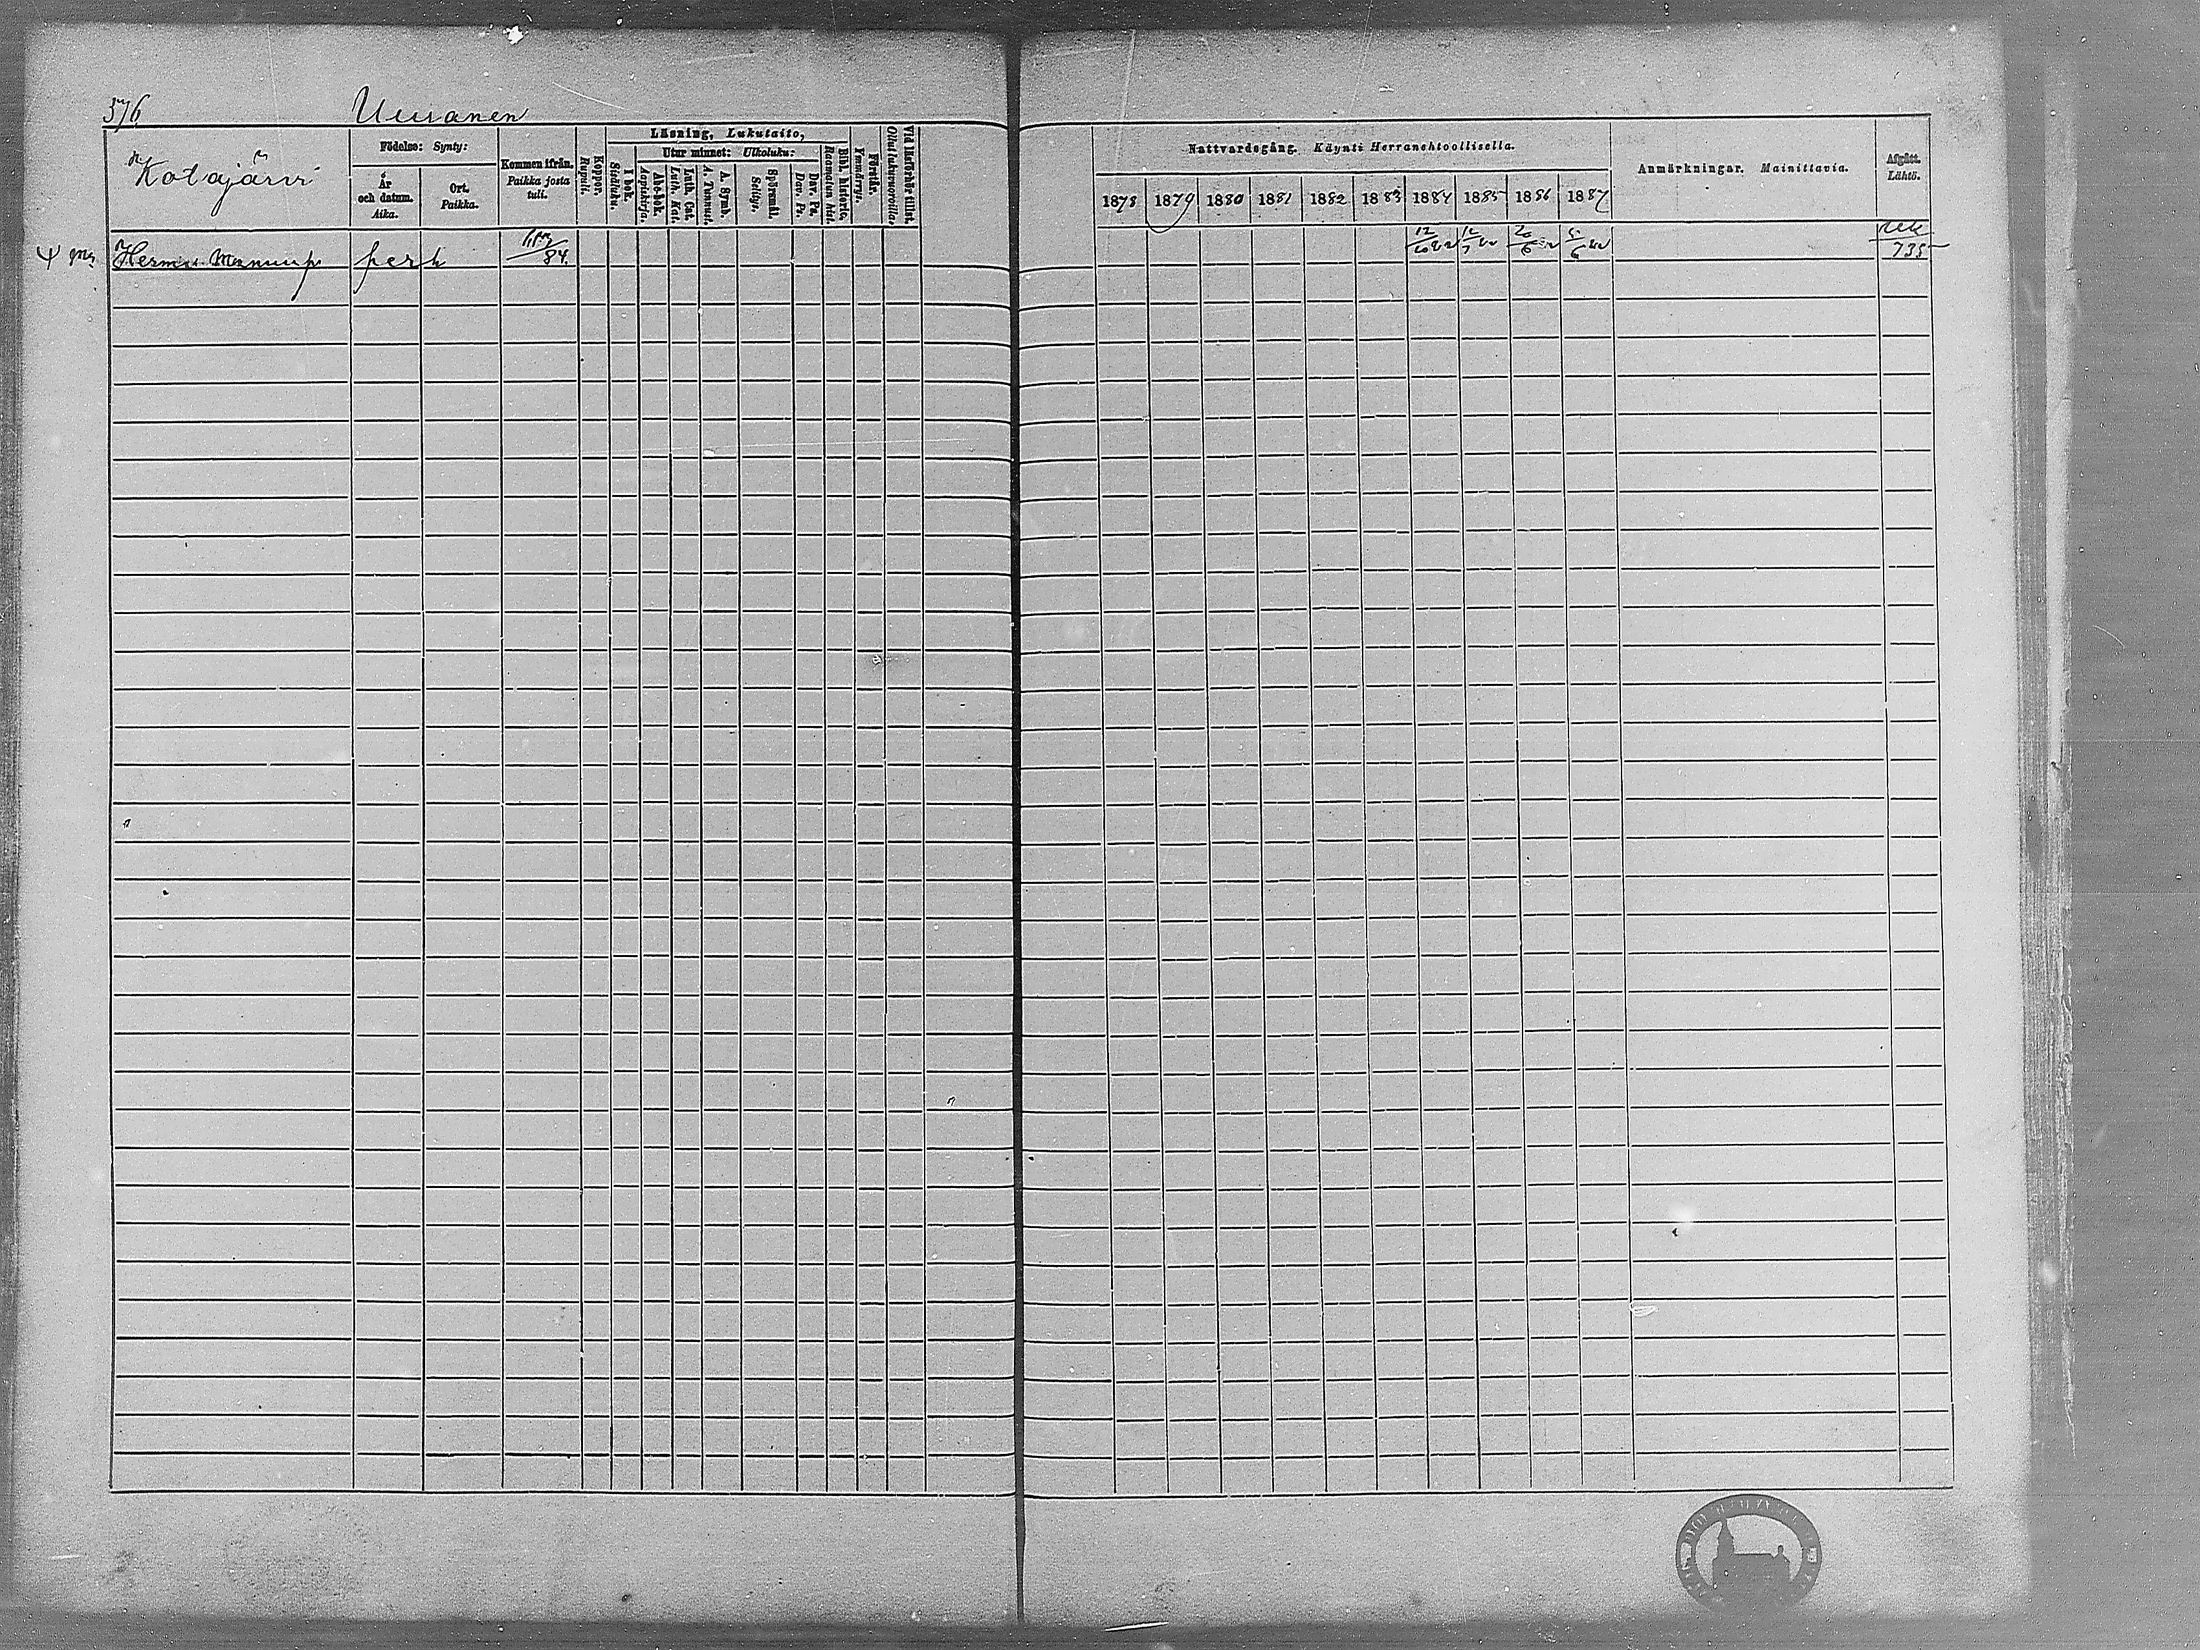 376 Uusanen
Kotajärvi
Födelse: Synty:
År och datum. Aika.
Ort. Paikka.
Kommen ifrån. Paikka josta tuli.
Koppor. Rupuli.
Läsning, Lukutaito,
I bok. Sisäluku.
Utur minnet: Ulkoluku:
Abc-bok. Aapiskirja.
Luth. Cat. Luth. Kat.
A. Symb. A. Tunnust.
Spörsmål. Selitys.
Dav. Ps. Dav. Ps.
Bibl. historie. Raamatun hist.
Förstån. Ymmärrys.
Vid läsförhör tillst. Ollut lukuvuorolla.
Nattvardsgång. Käynti Herranehtoollisella.
1878 1879 1880 1881 1882 1883 1884 1885 1886 1887
Anmärkningar. Mainittavia.
Afgått. Lähtö.
perh 84.
735